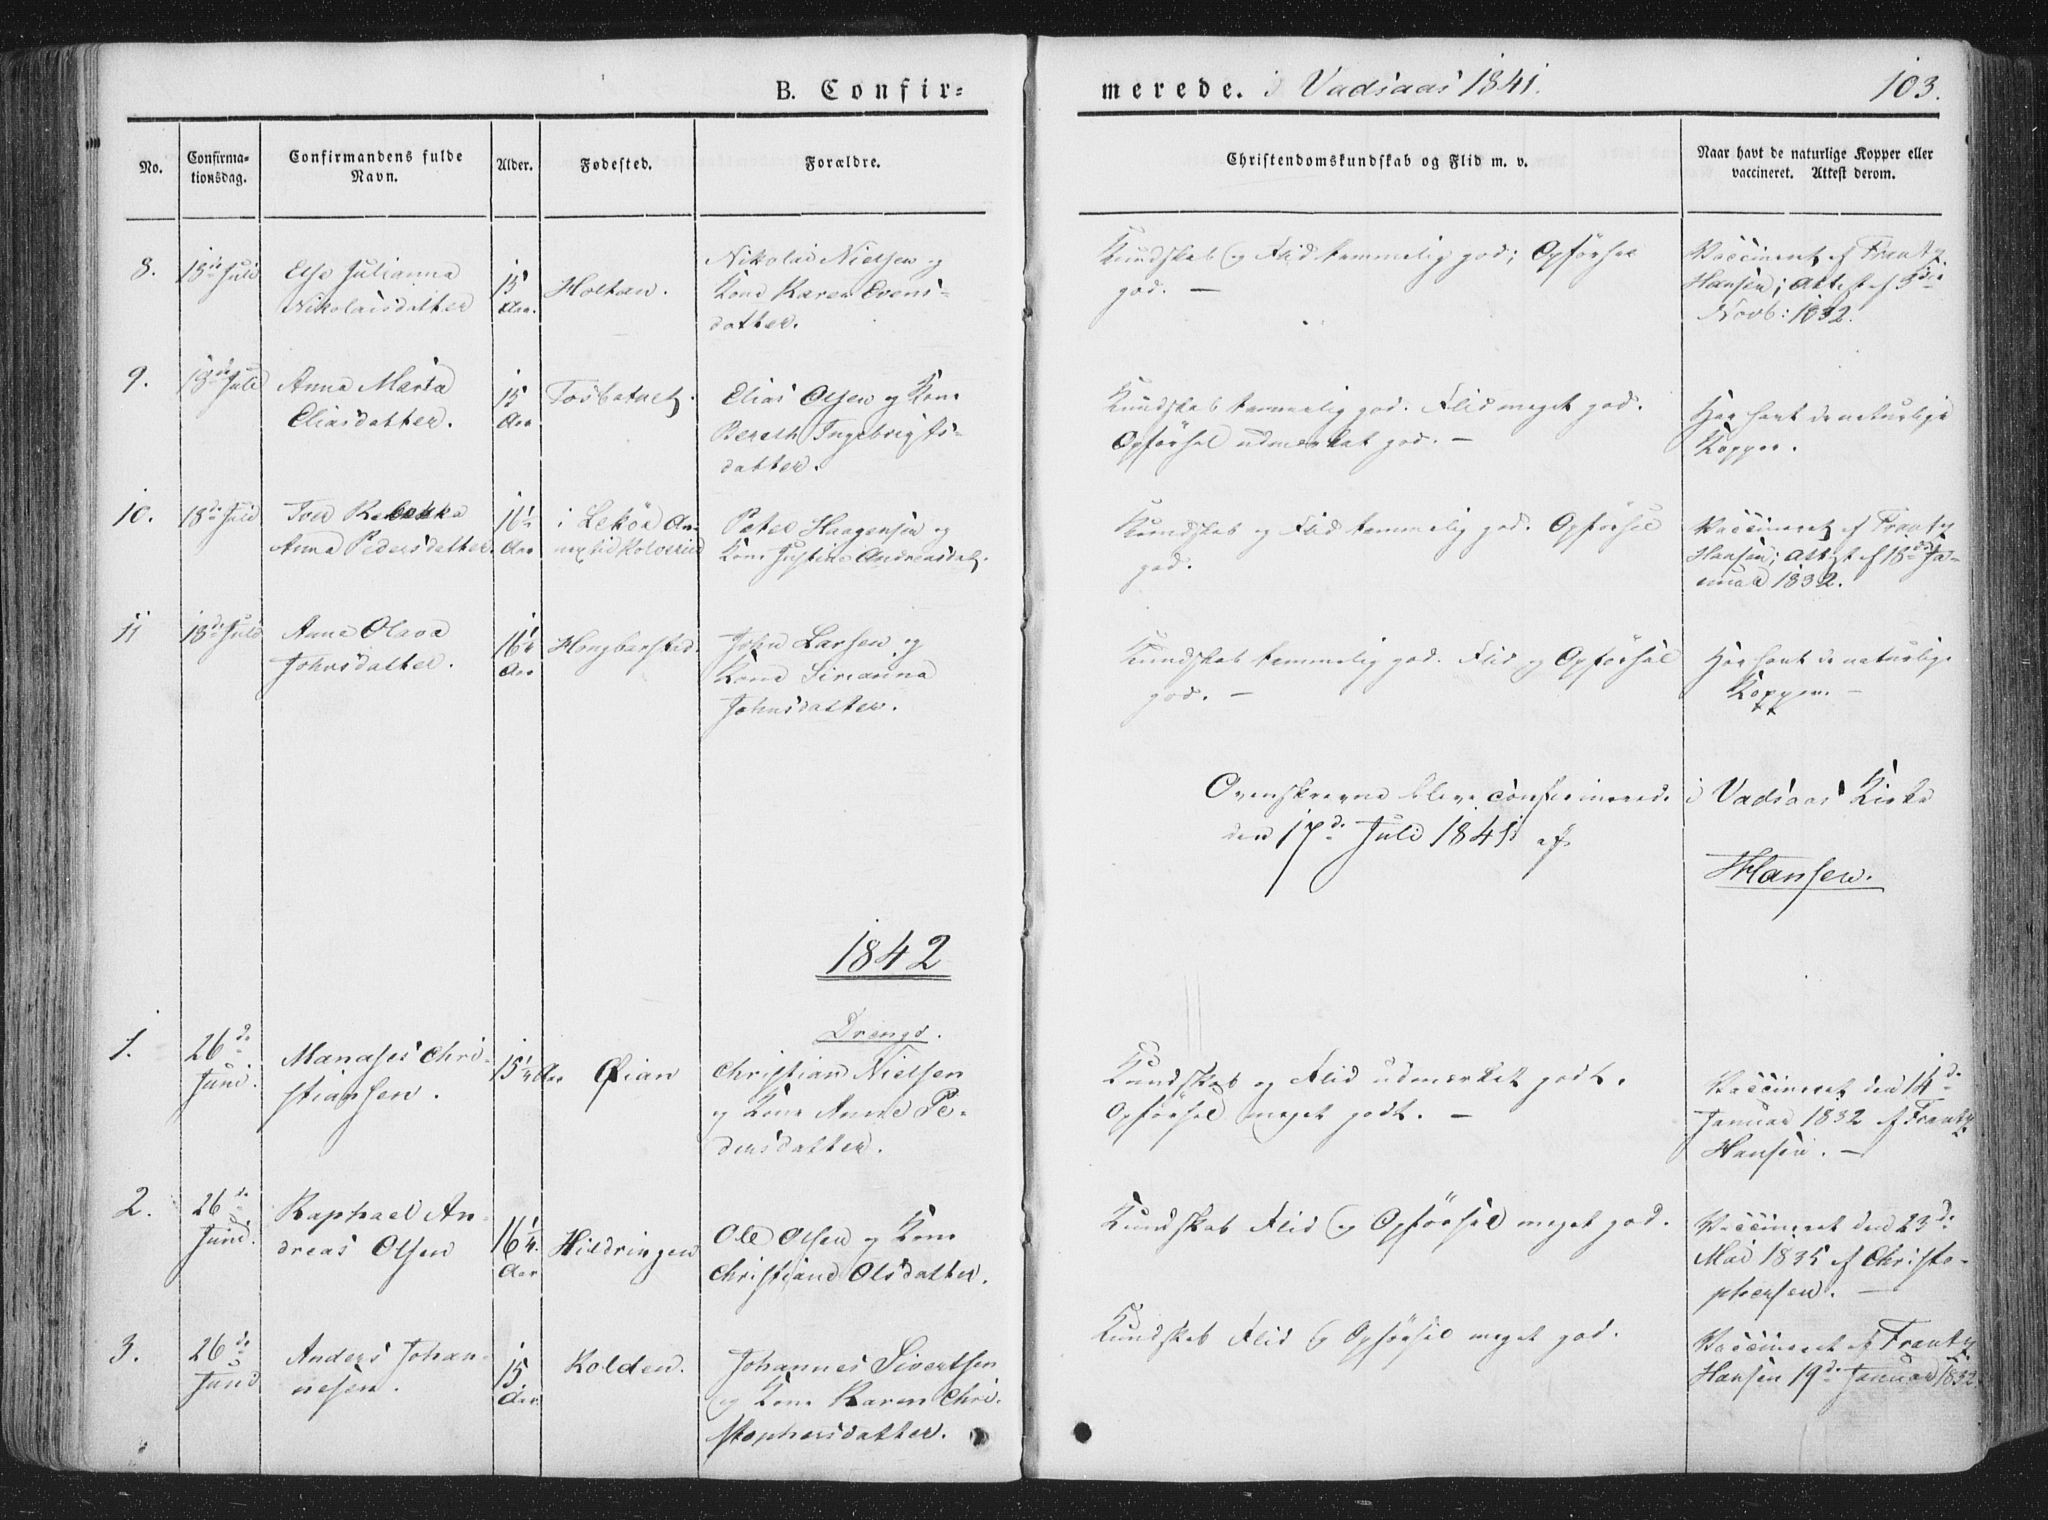 B. Confir=
merede. i Vadsaas 1841.
103.
No.
Confirma-
tionsdag.
Confirmandens fulde
Navn.
Alder.
Fødested.
Forældre.
Christendomskundskab og Flid m. v.
Naar havt de naturlige Kopper eller
vaccineret. Attest derom.
8.
18de Juli
Else Julianna
Nikolaisdatter
15
Aar.
Holtan.
Nikolai Nielsen og
Kone Karen Evens-
datter.
Kundskab og Flid temmelig god; Opförsel
god. —
Vaccineret af Frantz
Hansen; Attest af 5de
Novb: 1832.
9.
18de Juli
Anna Maria
Eliasdatter.
15
Aar
Tosbotnet.
Elias Olsen og Kone
Bereth Ingebrigts-
datter.
Kundskab temmelig god. Flid meget god.
Opförsel udmærket god. —
Har havt de naturlige
Kopper.
10.
18de Juli
Rebekka
Anna Pedersdatter.
16½
Aar
i Lekö An-
nex til Kolvereid
Peter Haagensen og
Kone Justine Andreasdat.
Kundskab og Flid temmelig god. Opförsel
god.
Vaccineret af Frantz
Hansen; Attest af 18de Ja-
nuar 1832.
11
18de Juli
Anne Olava
Johnsdatter.
16¼
Aar
Hongbarstad.
John Larsen og
Kone Sirianna
Johnsdatter.
Kundskab temmelig god. Flid og Opförsel
god. —
Har havt de naturlige
Kopper. —
Ovenskrevne bleve confirmerede i Vadsaas Kirke
den 17de Juli 1841 af
Hansen.
1842
Drenge.
1.
26de
Juni.
Manases Chri-
stiansen.
15¼ Aar
Øian
Christian Nielsen
og Kone Anne Pe-
dersdatter.
Kundskab og Flid udmærket godt.
Opförsel meget godt. —
Vaccineret den 14de
Januar 1832 af Frantz
Hansen. —
2.
26de
Juni.
Raphael An-
dreas Olsen
16¼.
Aar
Hildringen
Ole Olsen og Kone
Christiane Olsdatter.
Kundskab Flid og Opförsel meget god.
Vaccineret den 23de
Mai 1835 af Christo-
phersen. —
3.
26de
Juni
Anders Johan-
nesen.
15
Aar
Kolden.
Johannes Sivertsen
og Kone Karen Chri-
stophersdatter.
Kundskab Flid og Opförsel meget god.
Vaccineret af Frantz
Hansen 19de Januar 1832.